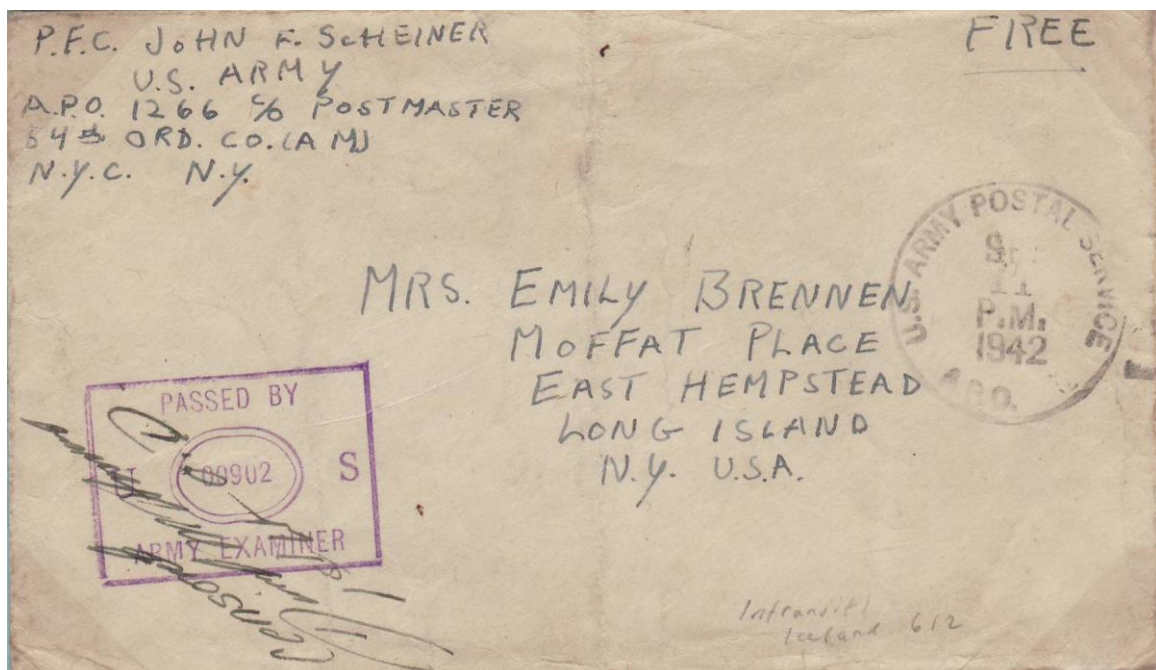 P.F.C. JOHN F. SCHEINER
U.S. ARMY
A.P.O. 1266 c/o POSTMASTER
54th ORD. CO. (AM)
N.Y.C. N.Y.
FREE
U.S. ARMY POSTAL SERVICE
11
P.M.
1942
A.P.O.
MRS. EMILY BRENNEN
MOFFAT PLACE
EAST HEMPSTEAD
LONG ISLAND
N.Y. U.S.A.
PASSED BY
U 00902 S
ARMY EXAMINER
Censor
Intransit
Iceland 612